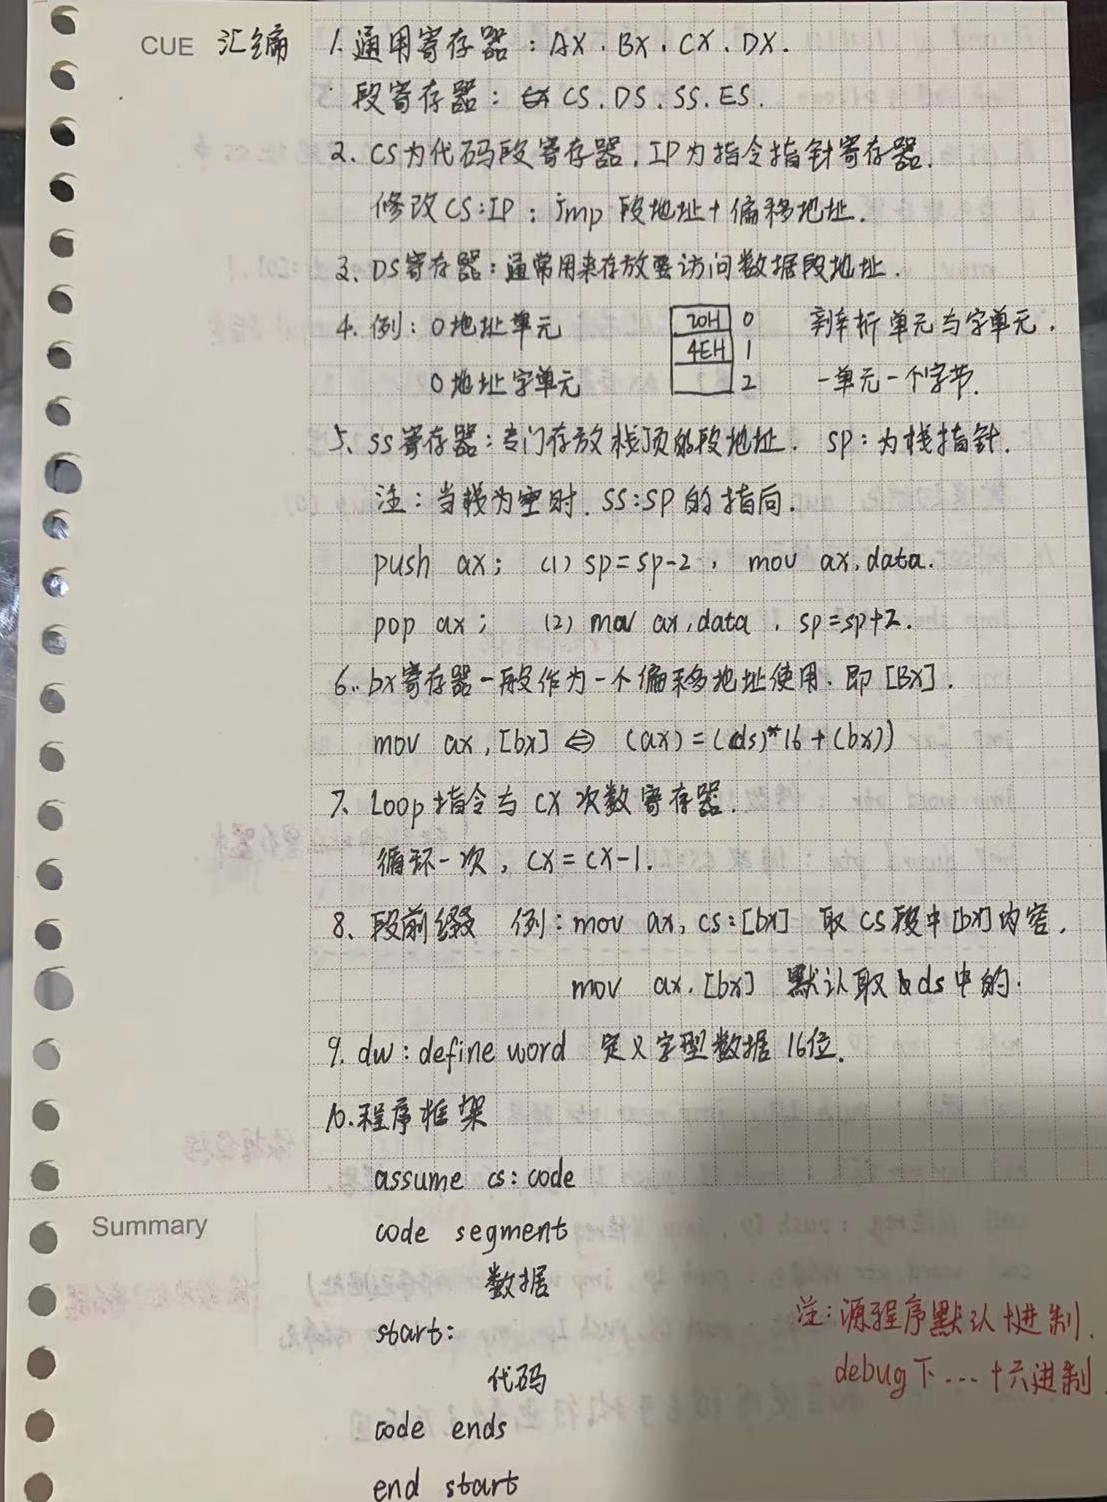 CUE 汇编 1. 通用寄存器：AX．BX．CX．DX．
段寄存器：CS．DS．SS．ES．
2、CS为代码段寄存器，IP为指令指针寄存器．
修改CS:IP：jmp 段地址+偏移地址．
3、DS寄存器：通常用来存放要访问数据段地址．
4．例：0地址单元 20H 0 辨析单元与字单元．
4EH 1
0地址字单元 2 一单元一个字节．
5、SS寄存器：专门存放栈顶的段地址． SP：为栈指针．
注：当栈为空时．SS:SP的指向．
push ax； (1) sp=sp-2， mov ax，data．
pop ax； (2) mov ax，data ，sp=sp+2．
6．bx寄存器一般作为一个偏移地址使用．即［BX］．
mov ax，[bx] ⇔ (ax)=((ds)*16+(bx))
7、Loop指令与CX次数寄存器．
循环一次，CX=CX-1．
8、段前缀 例：mov ax，cs:[bx] 取CS段中[bx]内容．
mov ax．[bx] 默认取ds中的．
9．dw：define word 定义字型数据 16位．
10．程序框架
assume cs:code
Summary code segment
数据
start：
注：源程序默认十进制．
代码
debug下…十六进制
code ends
end start